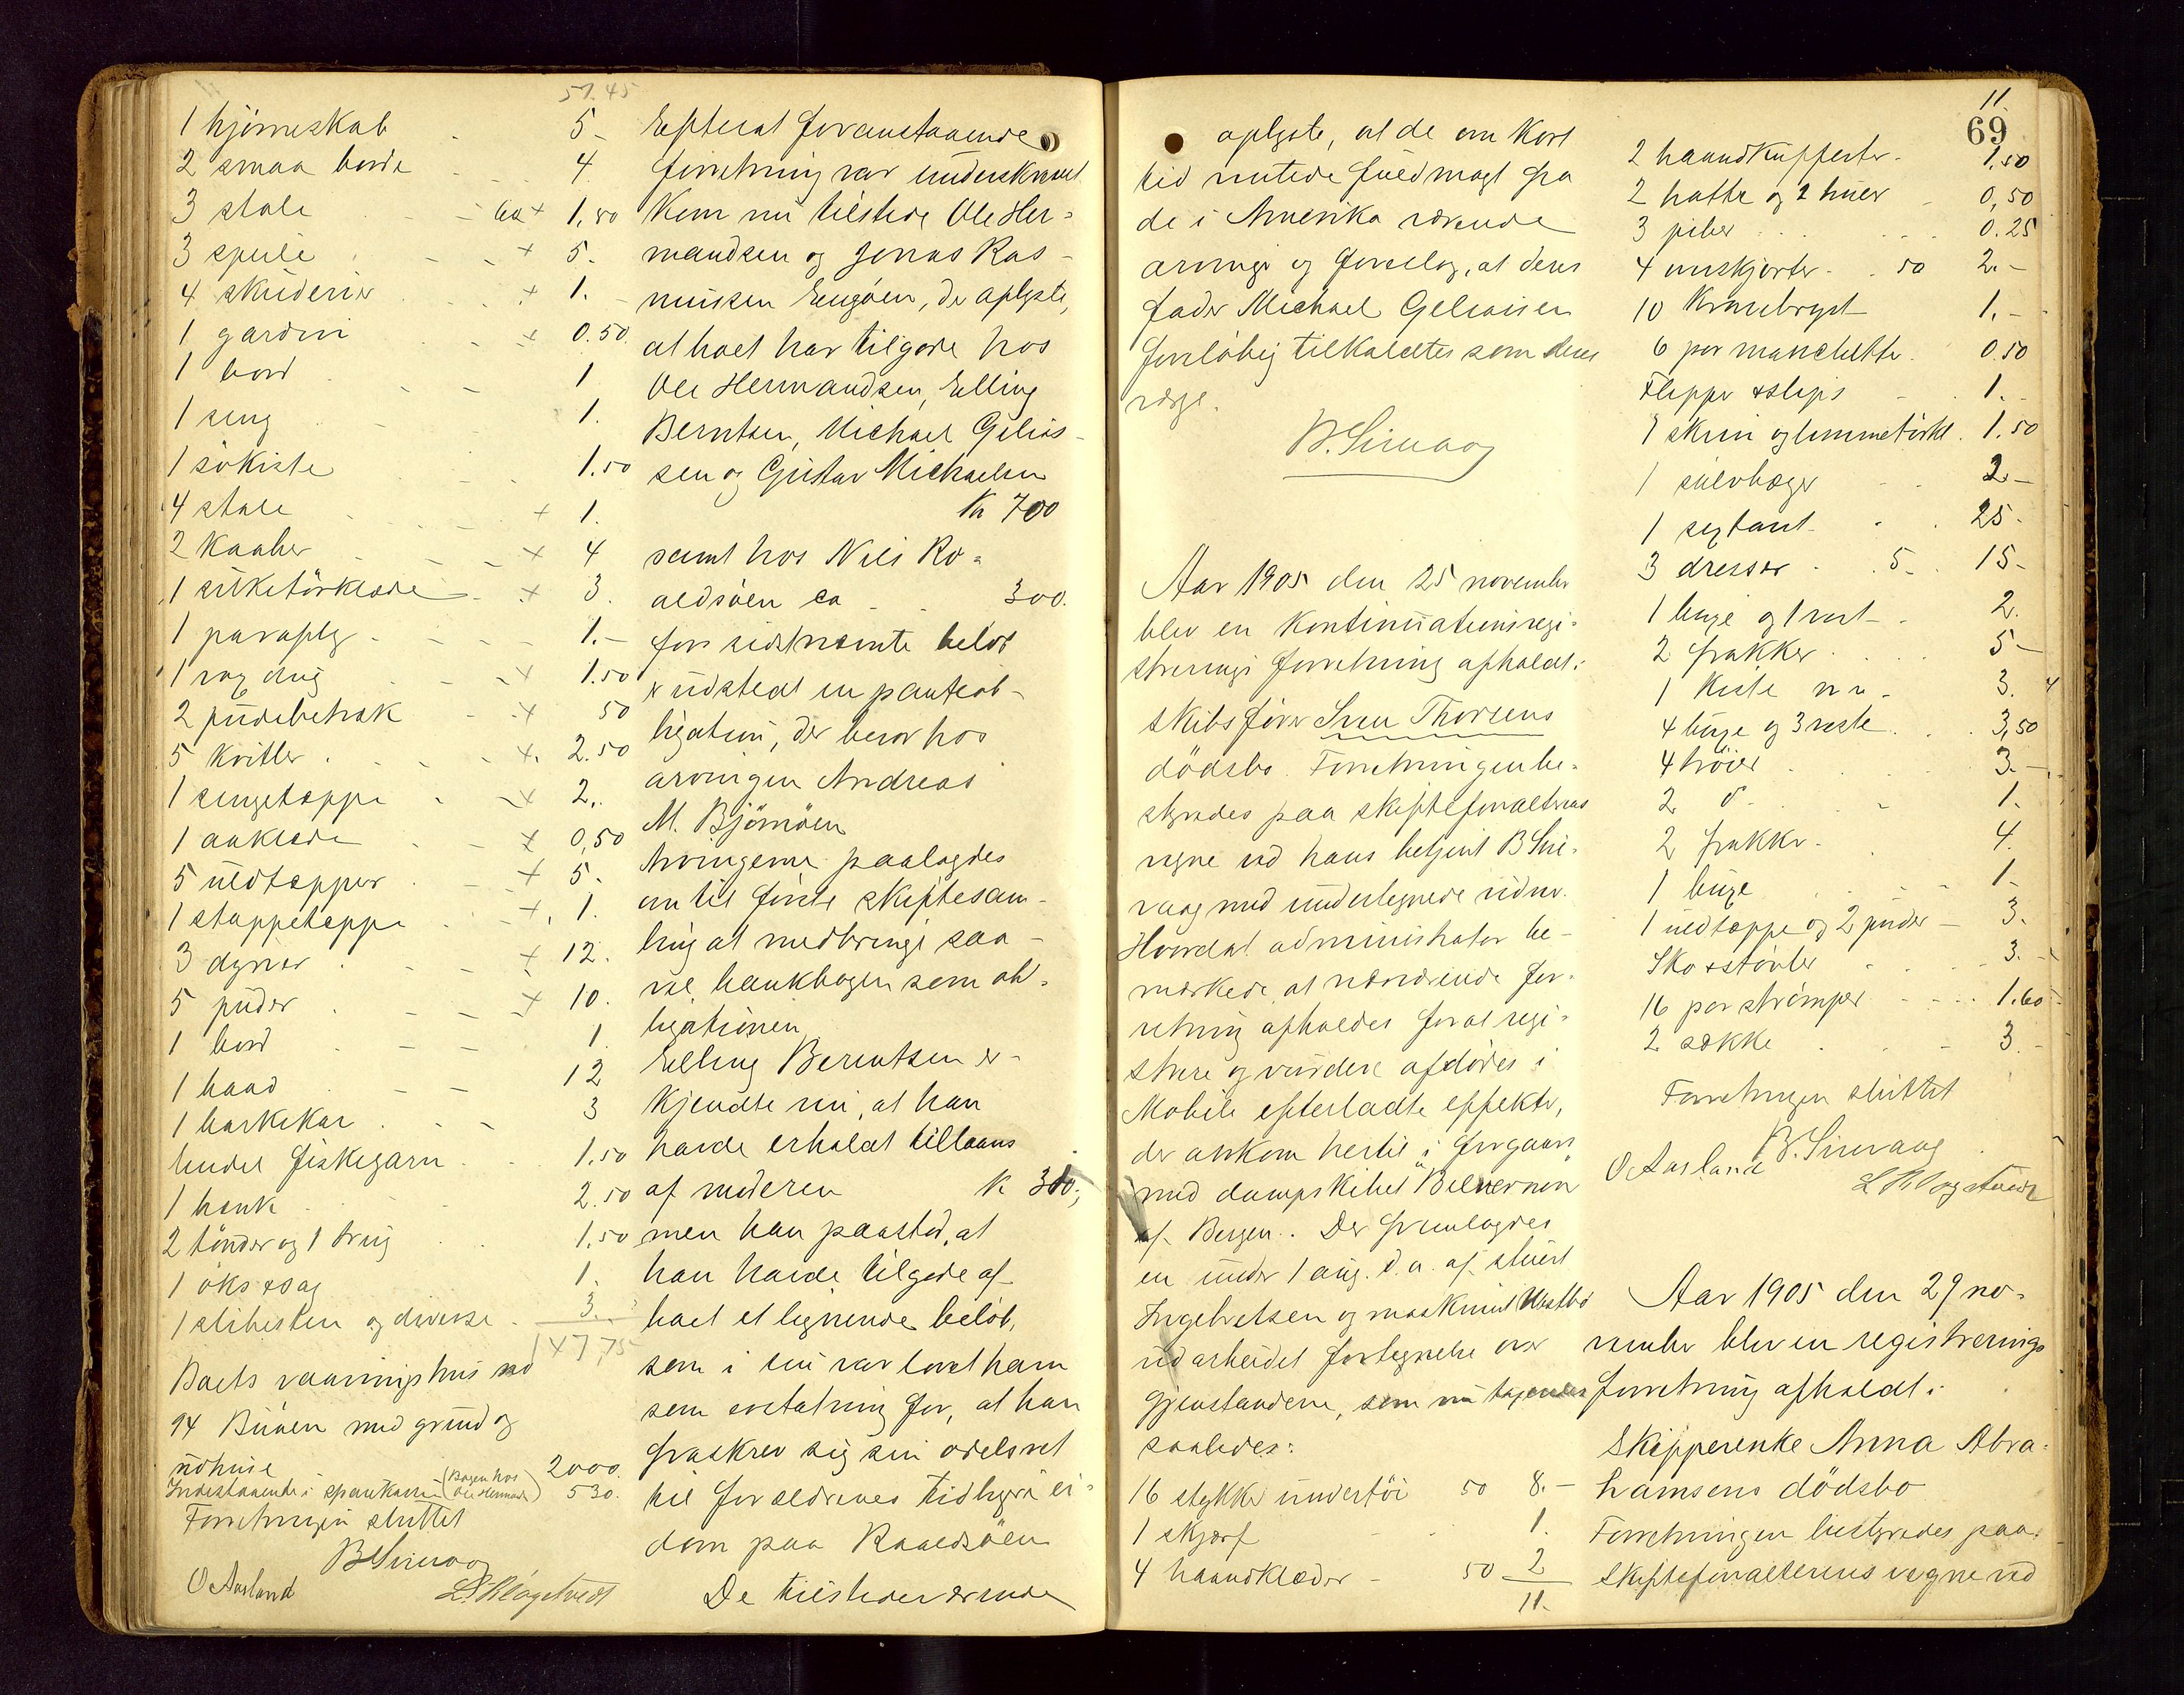 51.45
1 hjörneskab - 5 -
2 smaa borde - - - 4
3 stole - - 60 + 1,80
3 speile - - + 5.
4 skuderier - + 1. -
1 gardin - + 0.50
1 bord - - 1
1 seng 1.
1 sökiste 1.50
4 stole - - + 1.
2 Kaaber - + 4
1 silketörklæde - + 3.
1 paraply - - - 1. -
1 voxdug - + 1.50
2 pudebetræk - + 50
5 Kvitler - - + 2.50
1 sengetæppe - + 2.
1 aaklæde - + 0,50
5 uldtæpper - + 5.
1 stoppetæppe - + 1.
3 dyner - - + 12.
5 puder - - + 10.
1 bord - - 1
1 baad - - 12
1 barkekar - - 3
Endel fiskegarn - 1.50
1 bænk 2.50
2 tönder og 1 trug 1.50
1 öks & sag 1.
1 slibesten og diverse - 3. -
147,75
Boets vaaningshus no
94 Buöen med grund og
udhuse 2000.
Indestaaende i sparekassen (Bogen hos Ole Hermands) 530.
Forretningen sluttet
B Simvaag
O Aarland L. R Vagstvedt
Efterat foranstaaende
forretning var underskrevet
Kom nu tilstede Ole Her=
mandsen og Jonas Ras-
mussen Engöen, de oplyste,
at boet har tilgode hos
Ole Hermandsen, Elling
Berntsen, Michael Gelius-
sen og Gustav Michaelsen
Kr 700
samt hos Nils Ro=
aldsöen ca - - 300.
for sidstnævnte beløb
er udstedt en panteob-
ligation, der beror hos
arvingen Andreas
M. Björnöen
Arvingerne paalagdes
om til förste skiftesam-
ling at medbringe saa-
vel bankbogen som ob=
ligationen
Elling Berentsen er-
kjendte nu, at han
havde erholdt tillaans
af moderen Kr 300,
men han paastod, at
han havde tilgode af
boet et lignende belöb,
som i sin var lovet ham
som erstatning for, at han
fraskrev sig sin odelsret
til forældrenes tidligere ei=
dom paa Roaldsöen
De tilstedeværende
11
69
oplyste, at de om Kort
tid ventede fuldmagt fra
de i Amerika værende
arvinge og foreslog, at deres
fader Michael Geliusen
foreløbig tilkaldtes som deres
værge.
B. Simvaag
Aar 1905 den 25 november
blev en Kontinuationsregi=
strerings forretning afholdt i
skibsförer Sven Thorsens
dödsbo. Forretningen be-
styredes paa skifteforvalterens
vegne ved hans betjent B Sim=
vaag med undertegnede vidner.
Hvorda administrator be-
mærkede, at nærværende for=
retning afholdes for at regi=
strere og vurdere afdödes i
Mobile efterladte effekter,
der ankom hertil i forgaars
med dampskibet "Belvernon"
af Bergen. Der fremlagdes
en under 1 aug. d.a. af stuert
Ingebretsen og maskinist Westbö
udarbeidet fortegnelse over
gjenstandene, som nu
saaledes:
16 stykker undertöi 50 8. -
1 skjærf - - 1.
4 haandklæder - 50 - 2
11.
2 haandkufferter - 1,50
2 hatte og 2 huer - 0,50
3 piber - - - 0.25
4 unskjorter - - 50 2. -
10 Kravebryst 1. -
6 par manchetter. 0.50
Flipper & slips - - 1. -
1 skrin og lommetörkl. 1.50
1 sölvbæger - - 2. -
1 sextant - - 25 -
3 dresser - 5 - 15 -
1 buxe og 1 vest - 2.
2 frakker - - - 5 -
1 Kiste m. m - 3. 4
4 buxe og 3 veste - - 3,50
4 tröier - - 3. -
2 do - - - 1.
2 frakker - - 4.
1 buxe - - - 1 -
1 uldtæppe og 2 puder - 3.
Sko & stövler - - - 3. -
16 par strömper - - - 1.60
2 sække - - 3. -
Forretningen sluttet
B. Simvaag
O Aarland L R Vagstvedt
Aar 1905 den 29 no-
vember blev en registrerings
forretning afholdt i
Skipperenke Anna Abra=
hamsens dödsbo
Forretningen bestyredes paa
Skifteforvalterens vegne ved